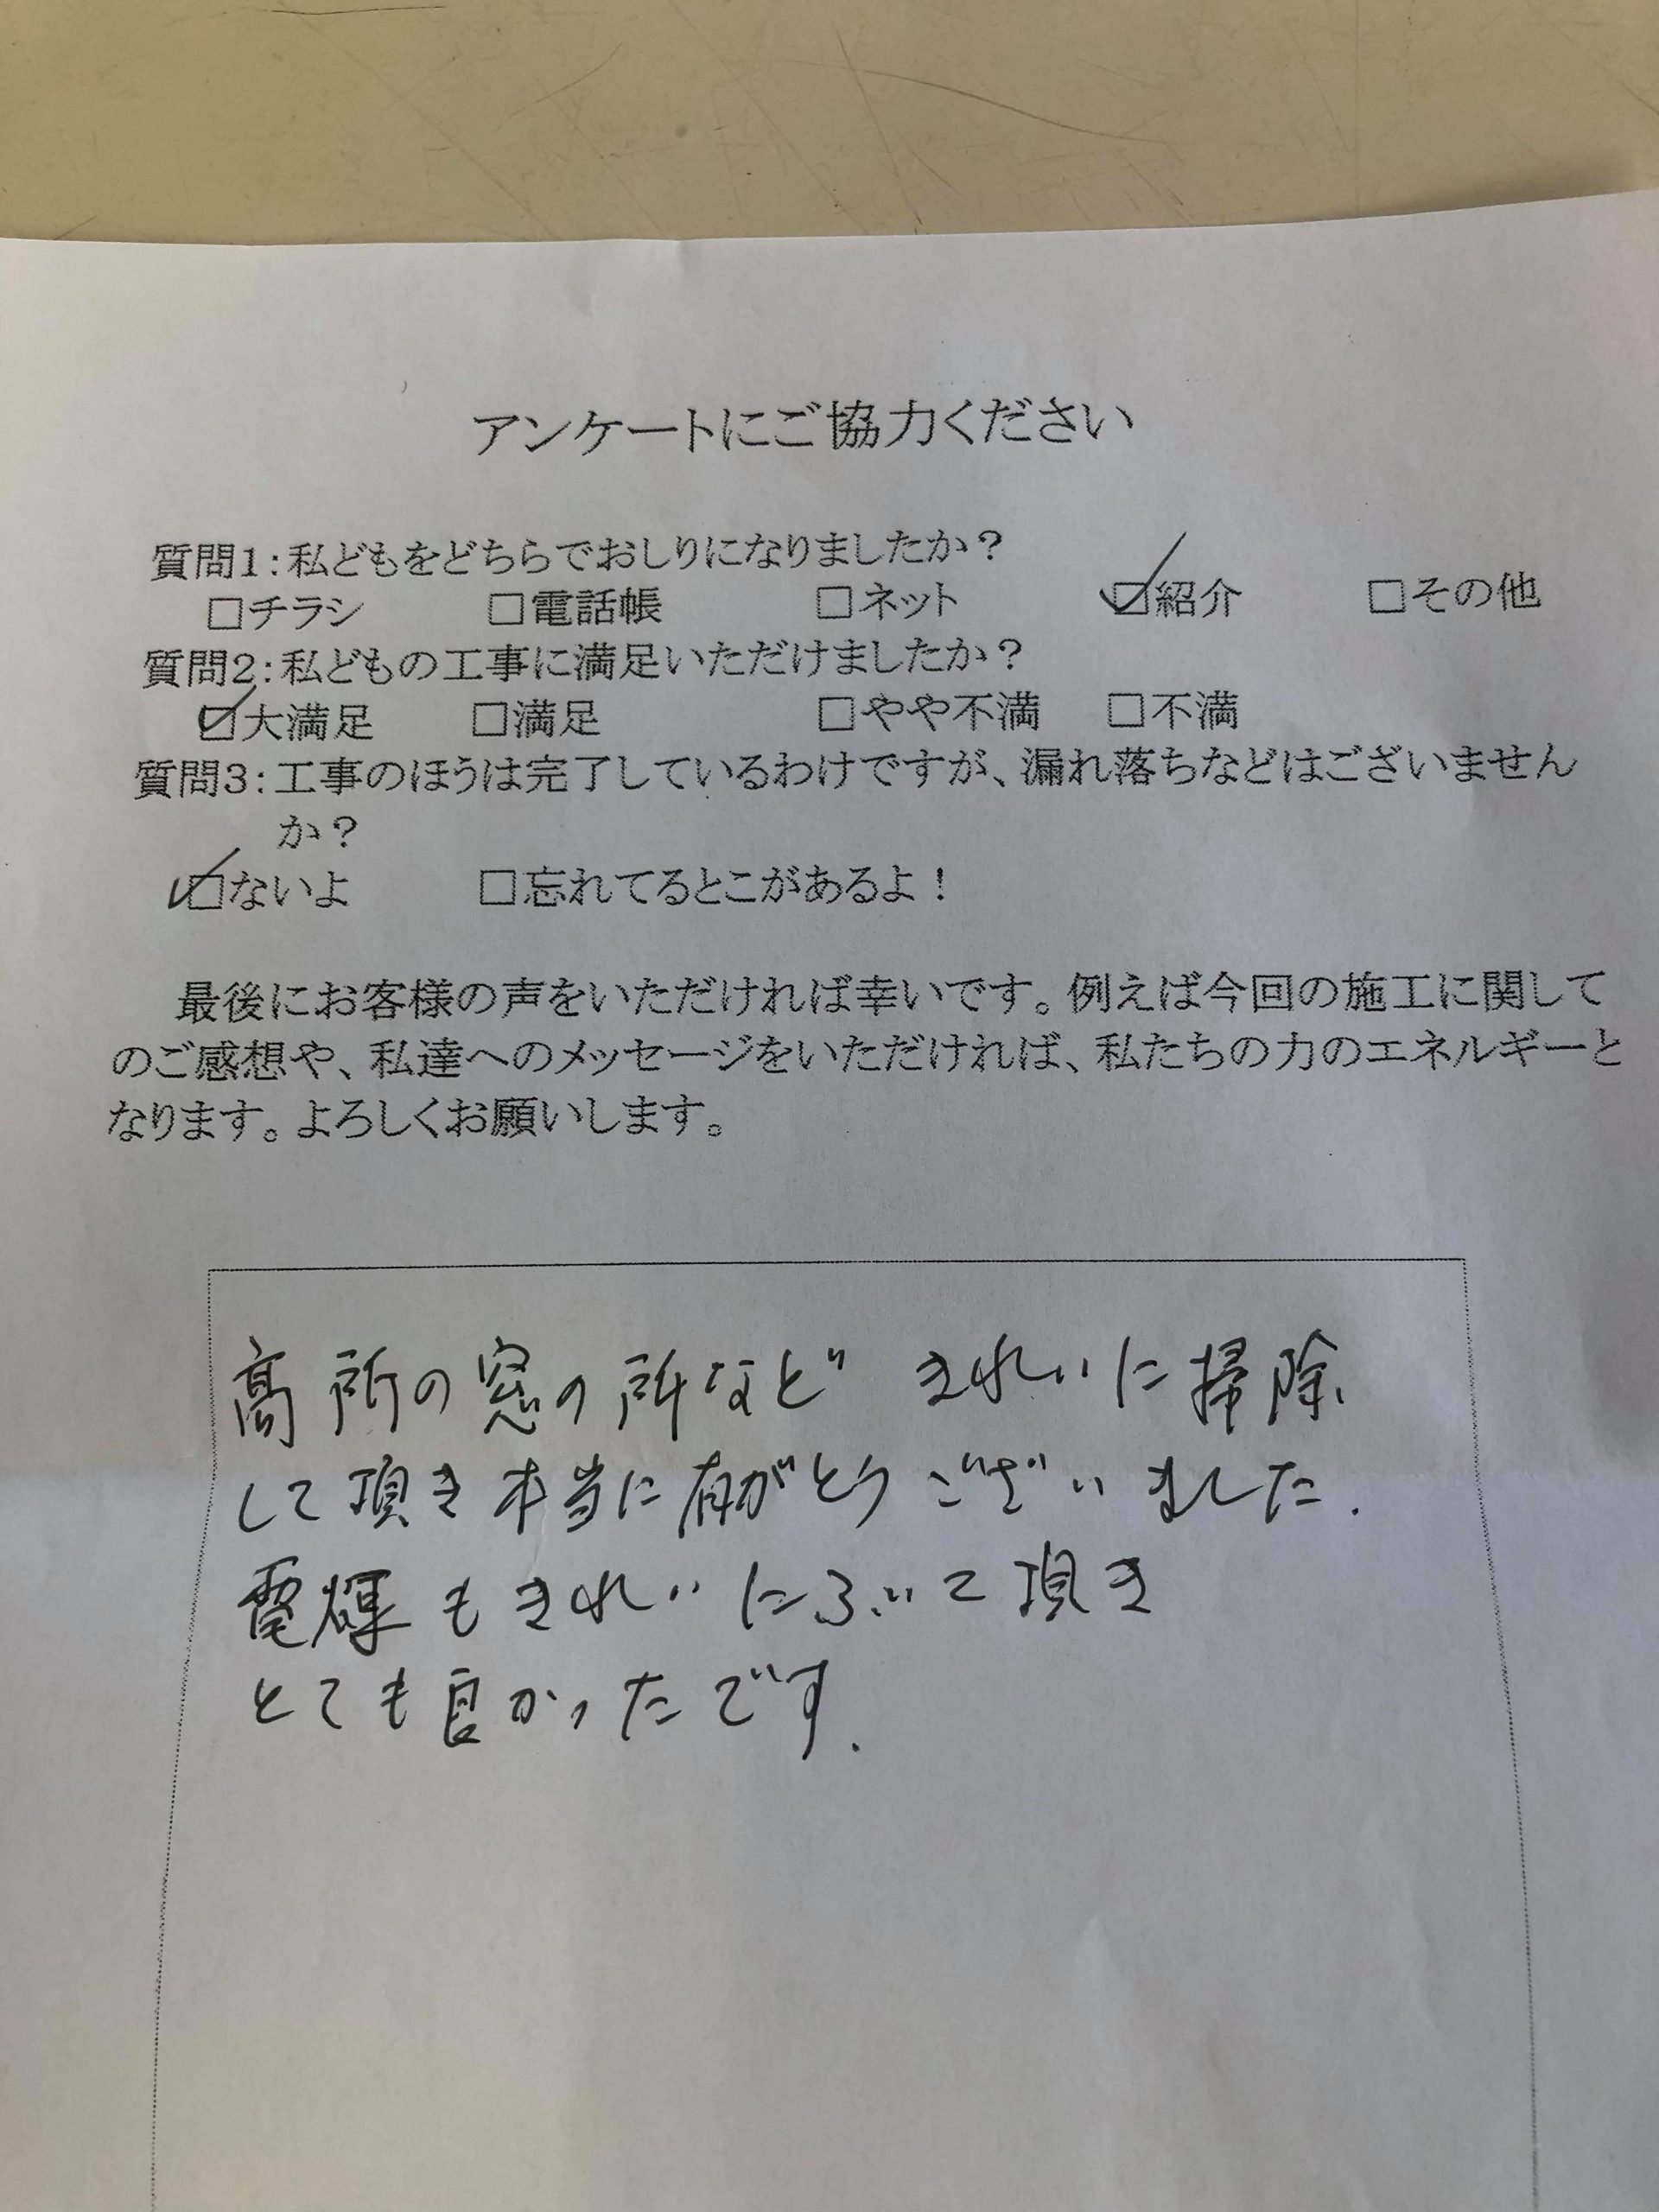 アンケートにご協力ください
質問1:私どもをどちらでおしりになりましたか?
□チラシ □電話帳 □ネット ☑紹介 □その他
質問2:私どもの工事に満足いただけましたか?
☑大満足 □満足 □やや不満 □不満
質問3:工事のほうは完了しているわけですが、漏れ落ちなどはございません
か?
☑ないよ □忘れてるとこがあるよ!
最後にお客様の声をいただければ幸いです。例えば今回の施工に関して
のご感想や、私達へのメッセージをいただければ、私たちの力のエネルギーと
なります。よろしくお願いします。
高所の窓の所など きれいに掃除
して頂き本当に有がとうございました.
もきれいにふいて頂き
とても良かったです.